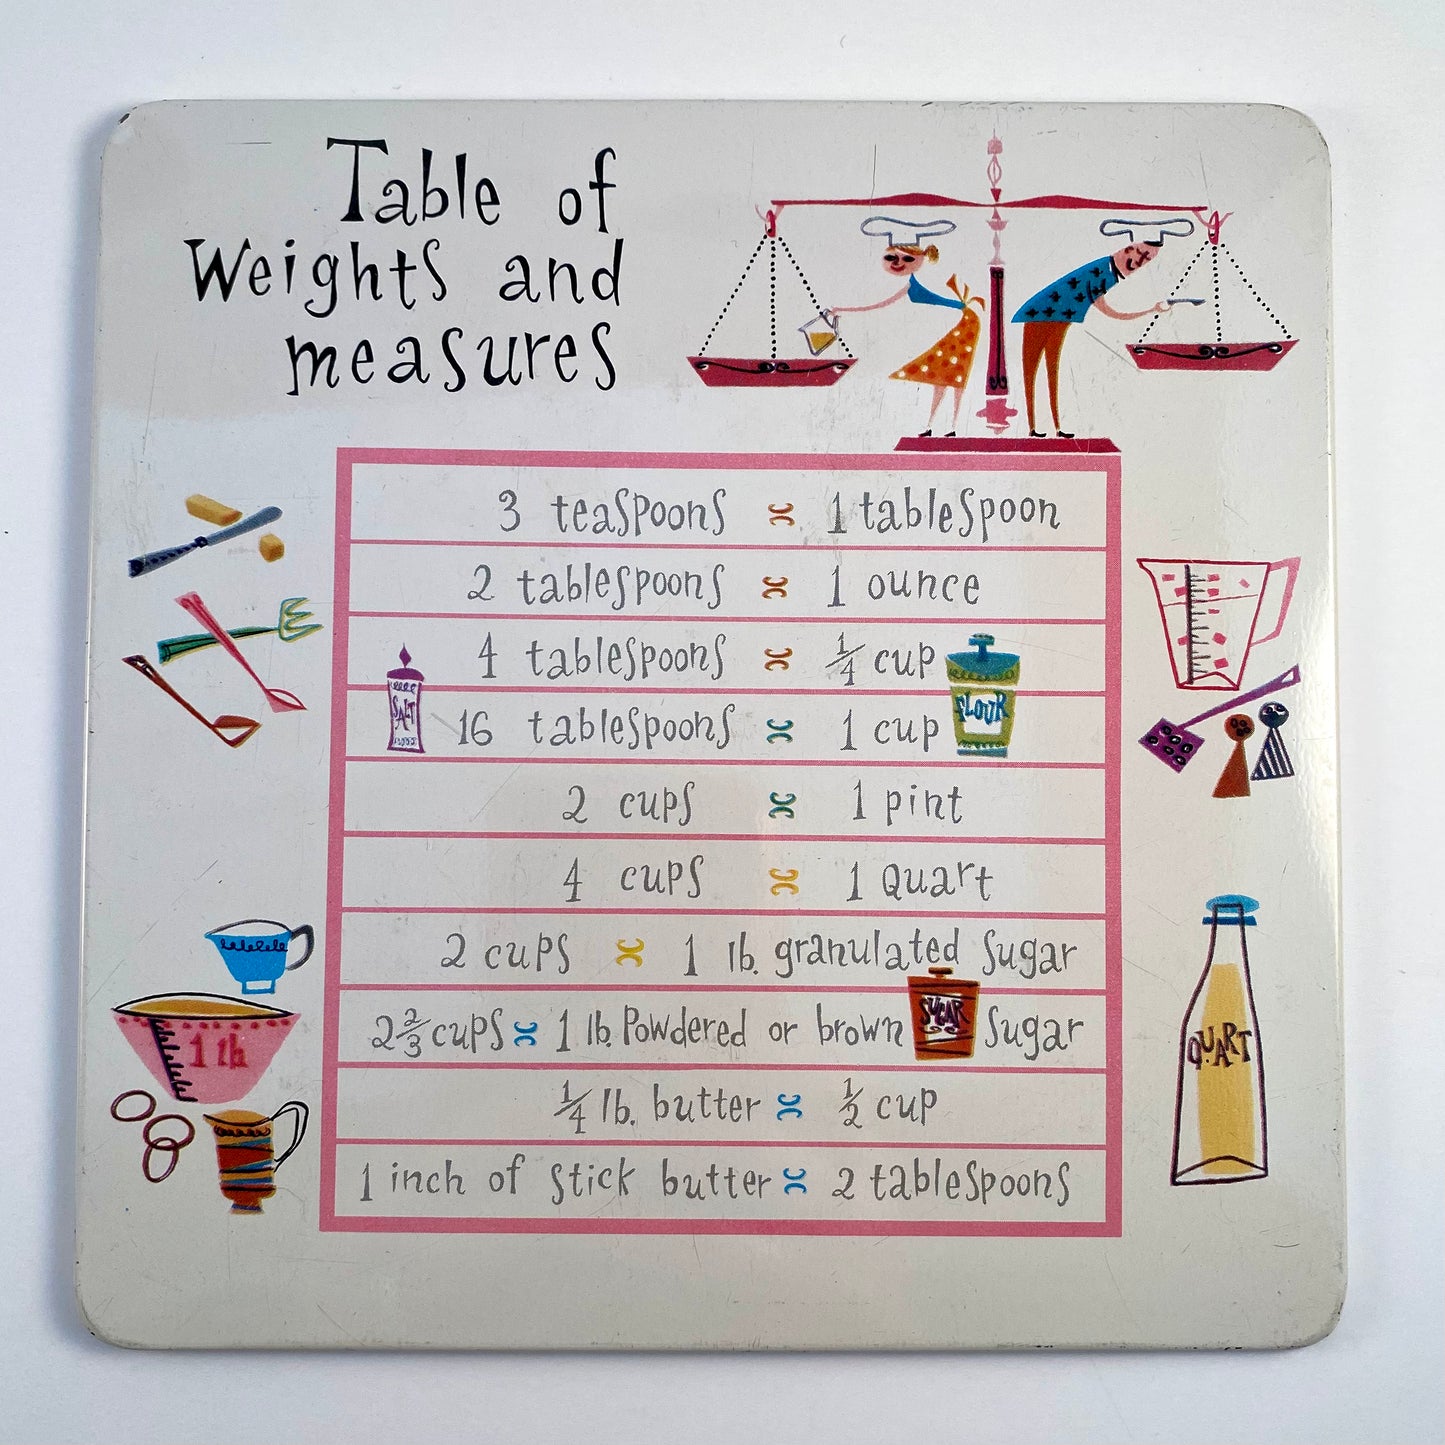 Table of
Weights and
measures
3 teaspoons = 1 tablespoon
2 tablespoons = 1 ounce
4 tablespoons = ¼ cup
SALT
16 tablespoons = 1 cup
FLOUR
2 cups = 1 pint
4 cups = 1 Quart
2 cups = 1 lb. granulated sugar
2⅔ cups = 1 lb. Powdered or brown sugar
SUGAR
1 lb
QUART
¼ lb. butter = ½ cup
1 inch of stick butter = 2 tablespoons